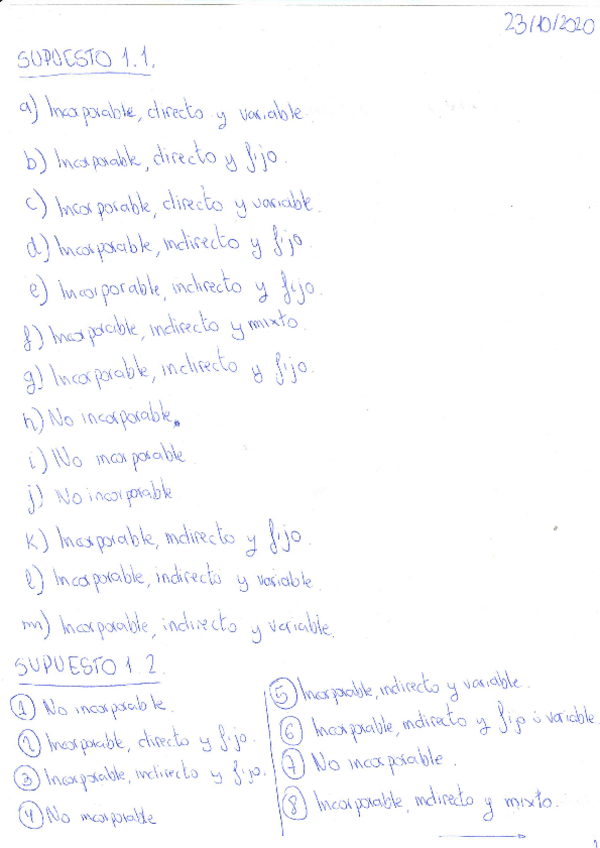 23/10/2020
SUPUESTO 1.1.
a) Incorporable, directo y variable.
b) Incorporable, directo y fijo.
c) Incorporable, directo y variable.
d) Incorporable, indirecto y fijo.
e) Incorporable, indirecto y fijo.
f) Incorporable, indirecto y mixto.
g) Incorporable, indirecto y fijo.
h) No incorporable.
i) No incorporable.
j) No incorporable
k) Incorporable, indirecto y fijo.
l) Incorporable, indirecto y variable.
m) Incorporable, indirecto y variable.
SUPUESTO 1.2.
1 No incorporable.
2 Incorporable, directo y fijo.
3 Incorporable, indirecto y fijo.
4 No incorporable
5 Incorporable, indirecto y variable.
6 Incorporable, indirecto y fijo o variable.
7 No incorporable.
8 Incorporable, indirecto y mixto.
1